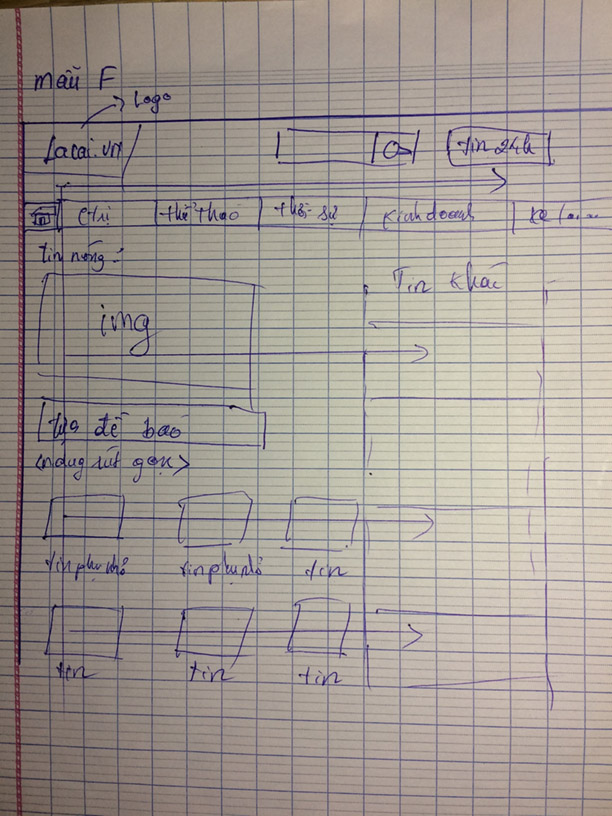 mẫu F
Logo
Lacai.vn
tin 24h
ctrị
thể thao
thời sự
kinh doanh
tin nóng:
Tin khác
img
tựa đề báo
<nội dung rút gọn>
tin phụ nhỏ
tin phụ nhỏ
tin
tin
tin
tin